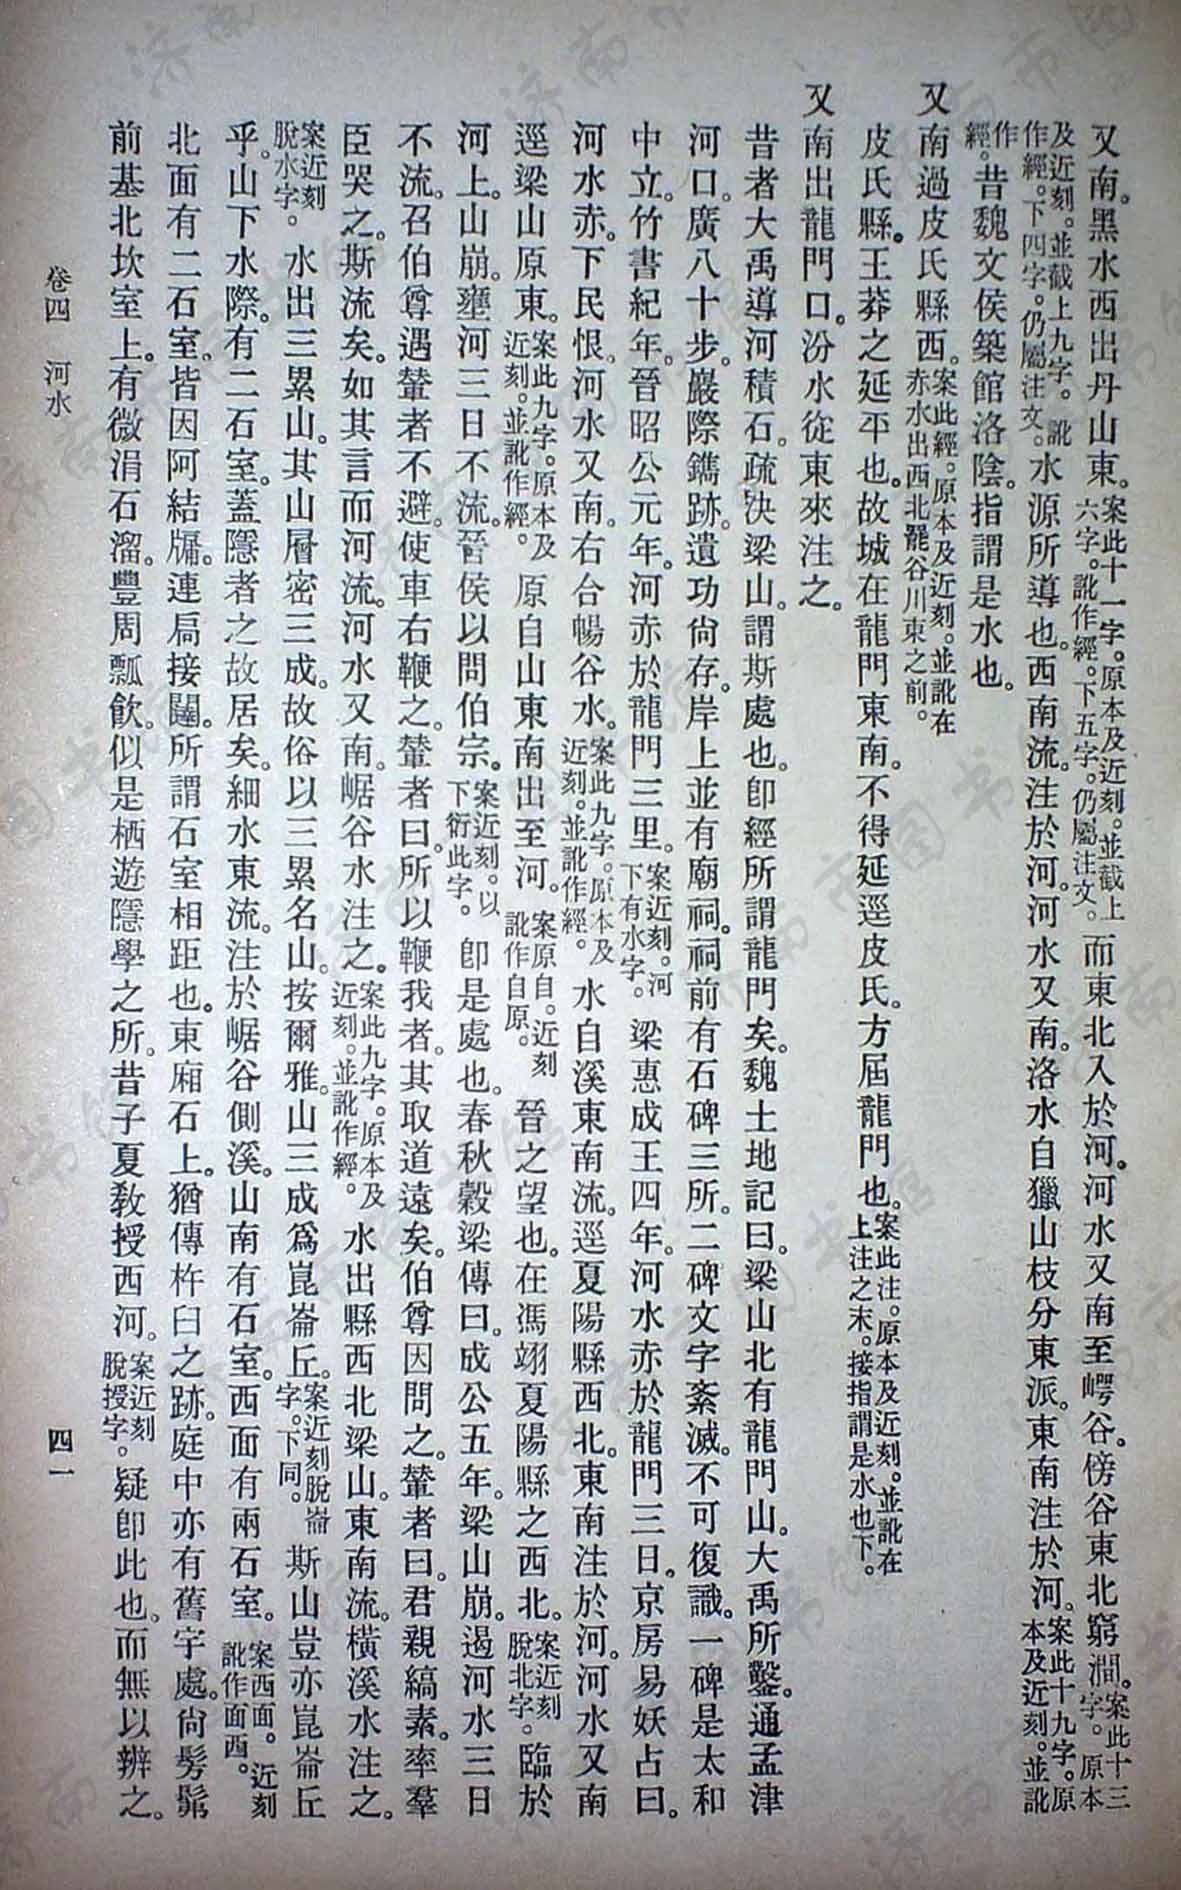 又南。黑水西出丹山東。案此十一字。原本及近刻。並截上六字。訛作經。下五字。仍屬注文。而東北入於河。河水又南至崿谷。傍谷東北窮澗。案此十三字。原本
及近刻。並截上九字。訛作經。下四字。仍屬注文。水源所導也。西南流。注於河。河水又南。洛水自獵山枝分東派。東南注於河。案此十九字。原本及近刻。並訛
作經。昔魏文侯築館洛陰。指謂是水也。
又南過皮氏縣西。案此經。原本及近刻。並訛在赤水出西北罷谷川東之前。
皮氏縣。王莽之延平也。故城在龍門東南。不得延逕皮氏。方屆龍門也。案此注。原本及近刻。並訛在上注之末。接指謂是水也下。
又南出龍門口。汾水從東來注之。
昔者大禹導河積石。疏決梁山。謂斯處也。卽經所謂龍門矣。魏土地記曰。梁山北有龍門山。大禹所鑿。通孟津
河口。廣八十步。巖際鐫跡。遺功尙存。岸上並有廟祠。祠前有石碑三所。二碑文字紊滅。不可復識。一碑是太和
中立。竹書紀年。晉昭公元年。河赤於龍門三里。案近刻。河下有水字。梁惠成王四年。河水赤於龍門三日。京房易妖占曰。
河水赤。下民恨。河水又南。右合暢谷水。案此九字。原本及近刻。並訛作經。水自溪東南流。逕夏陽縣西北。東南注於河。河水又南
逕梁山原東。案此九字。原本及近刻。並訛作經。原自山東南出至河。案原自。近刻訛作自原。晉之望也。在馮翊夏陽縣之西北。案近刻脫北字。臨於
河上。山崩。壅河三日不流。晉侯以問伯宗。案近刻。以下衍此字。卽是處也。春秋穀梁傳曰。成公五年。梁山崩。遏河水三日
不流。召伯尊遇輦者不避。使車右鞭之。輦者曰。所以鞭我者。其取道遠矣。伯尊因問之。輦者曰。君親縞素。率羣
臣哭之。斯流矣。如其言而河流。河水又南。崌谷水注之。案此九字。原本及近刻。並訛作經。水出縣西北梁山。東南流。橫溪水注之。
案近刻脫水字。水出三累山。其山層密三成。故俗以三累名山。按爾雅。山三成爲崑崙丘。案近刻脫崙字。下同。斯山豈亦崑崙丘
乎。山下水際。有二石室。蓋隱者之故居矣。細水東流。注於崌谷側溪。山南有石室。西面有兩石室。案西面。近刻訛作面西。
北面有二石室。皆因阿結牖。連扃接闥。所謂石室相距也。東廂石上。猶傳杵臼之跡。庭中亦有舊宇處。尙髣髴
前基北坎室上。有微涓石溜。豐周瓢飮。似是栖遊隱學之所。昔子夏敎授西河。案近刻脫授字。疑卽此也。而無以辨之。
卷四　河水　四一